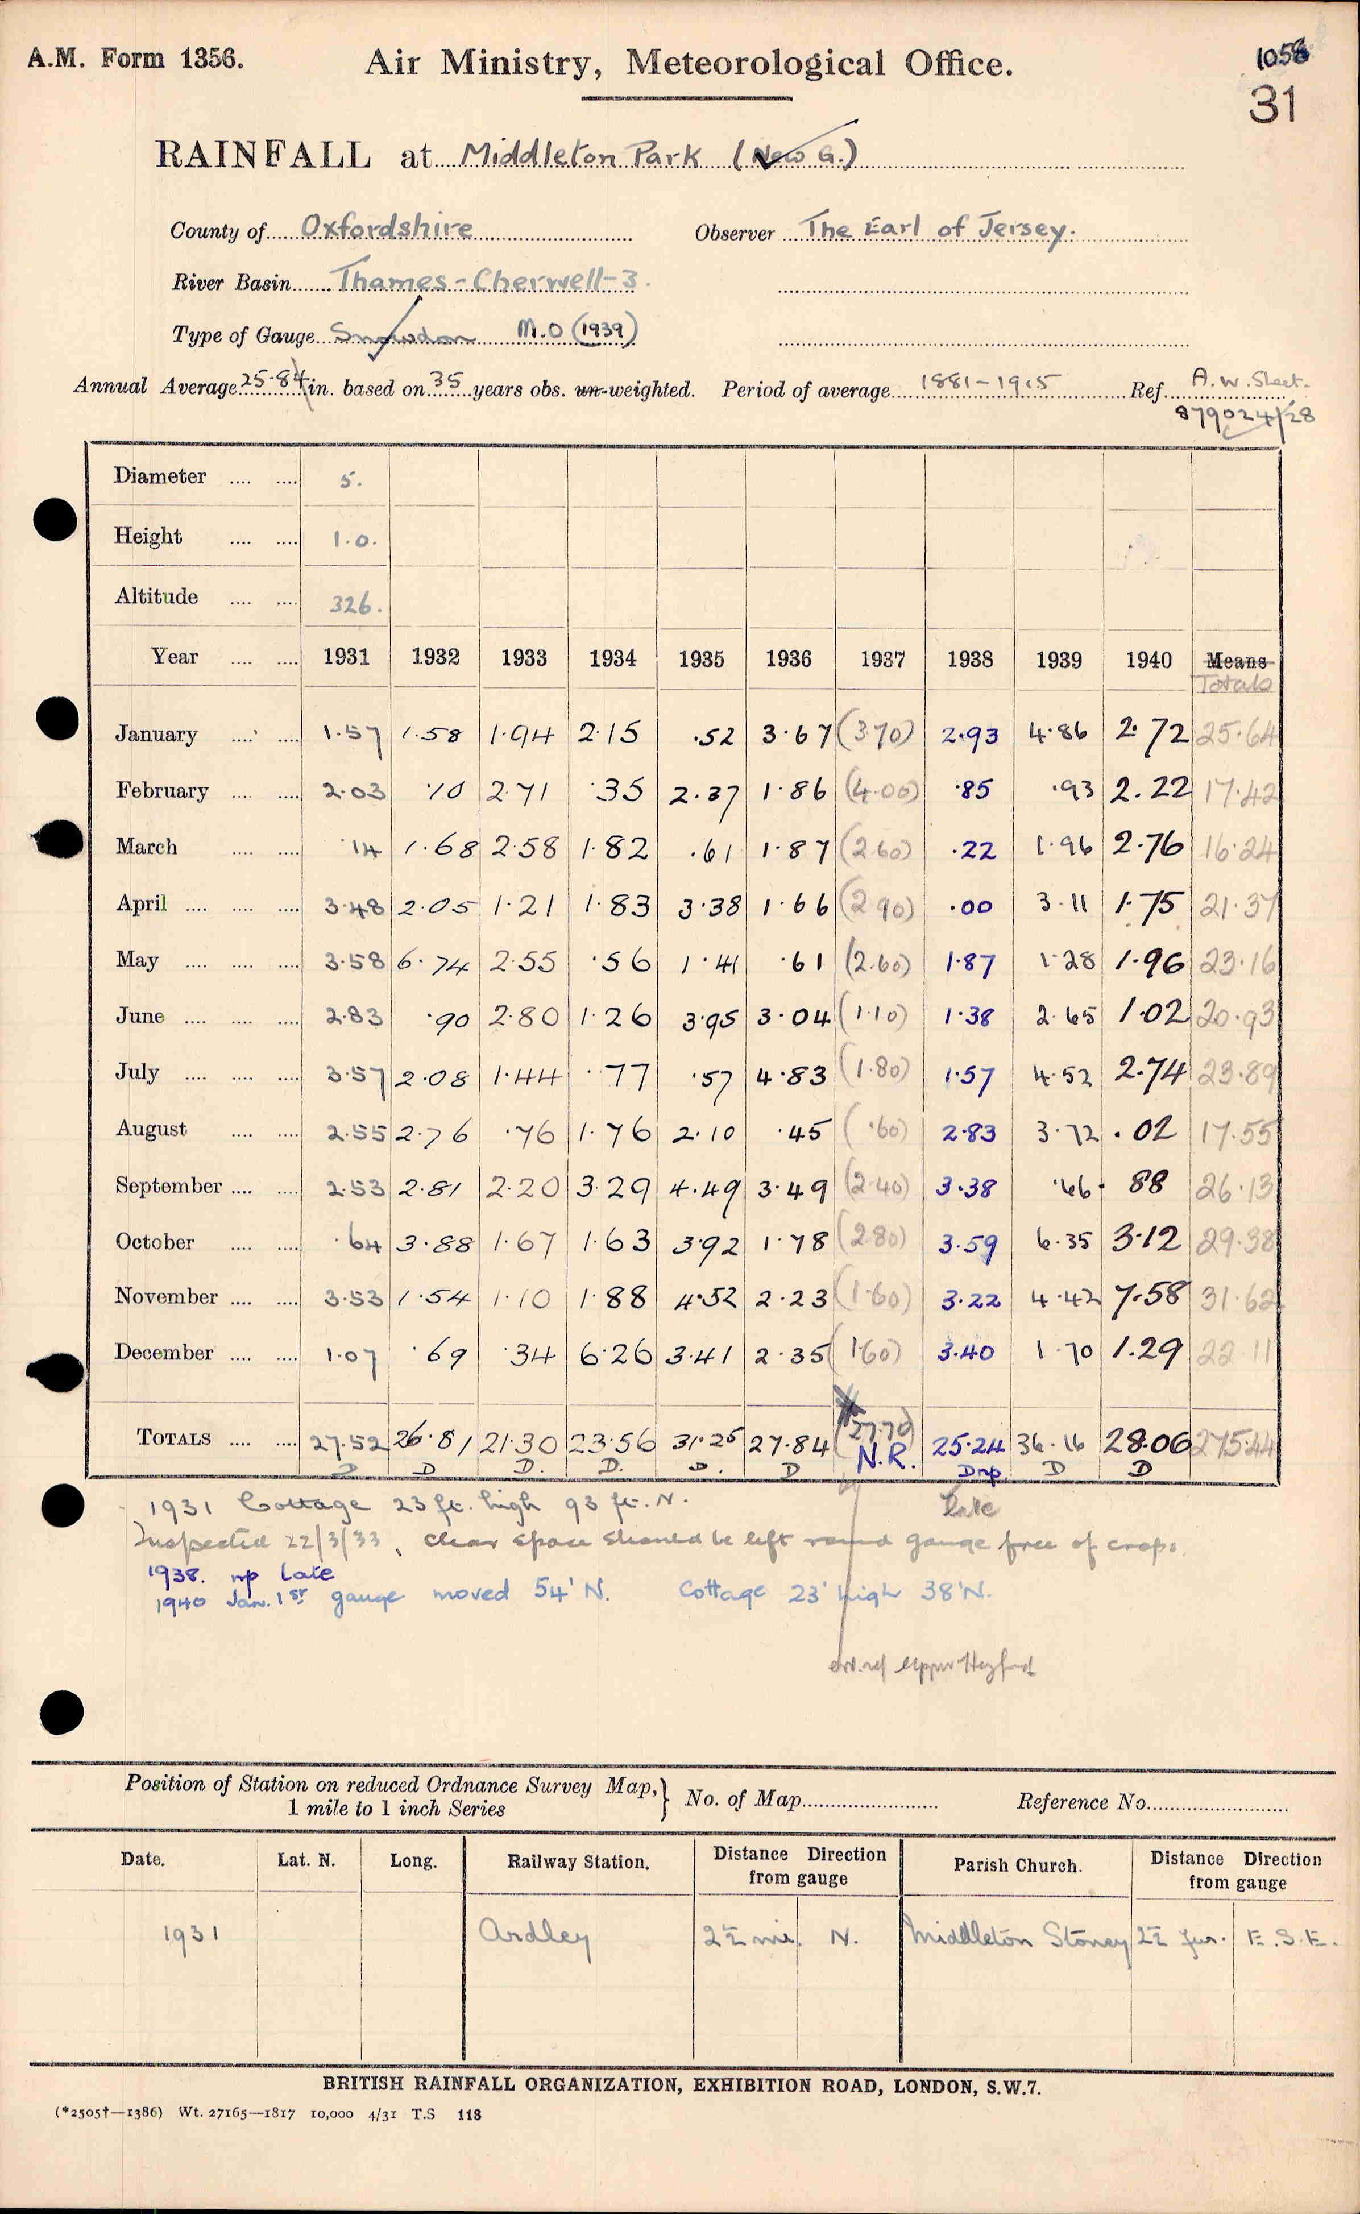 A.M. Form 1356.
Air Ministry, Meteorological Office.
1058
31
RAINFALL at Middleton Park (New G.)
County of Oxfordshire Observer The Earl of Jersey.
River Basin Thames-Cherwell-3.
Type of Gauge Snowdon M.O (1939)
Annual Average 25.84 in. based on 35 years obs. un-weighted. Period of average 1881-1915 Ref. A.W. Sheet.
879024/28
Diameter .... .... 5.
Height .... .... 1.0.
Altitude .... .... 326.
Year .... .... 1931 1932 1933 1934 1935 1936 1937 1938 1939 1940 Means
Totals
January .... .... 1.57 1.58 1.94 2.15 .52 3.67 (3.70) 2.93 4.86 2.72 25.64
February .... .... 2.03 .10 2.71 .35 2.37 1.86 (4.00) .85 .93 2.22 17.42
March .... .... .14 1.68 2.58 1.82 .61 1.87 (2.60) .22 1.96 2.76 16.24
April .... .... .... 3.48 2.05 1.21 1.83 3.38 1.66 (2.90) .00 3.11 1.75 21.37
May .... .... .... 3.58 6.74 2.55 .56 1.41 .61 (2.60) 1.87 1.28 1.96 23.16
June .... .... .... 2.83 .90 2.80 1.26 3.95 3.04 (1.10) 1.38 2.65 1.02 20.93
July .... .... .... 3.57 2.08 1.44 .77 .57 4.83 (1.80) 1.57 4.52 2.74 23.89
August .... .... 2.55 2.76 .76 1.76 2.10 .45 (.60) 2.83 3.72 .02 17.55
September .... .... 2.53 2.81 2.20 3.29 4.49 3.49 (2.40) 3.38 .66 .88 26.13
October .... .... .64 3.88 1.67 1.63 3.92 1.78 (2.80) 3.59 6.35 3.12 29.38
November .... .... 3.53 1.54 1.10 1.88 4.52 2.23 (1.60) 3.22 4.42 7.58 31.62
December .... .... 1.07 .69 .34 6.26 3.41 2.35 (1.60) 3.40 1.70 1.29 22.11
TOTALS .... .... 27.52 26.81 21.30 23.56 31.25 27.84 (27.70) 25.24 36.16 28.06 275.44
N.R.
D D D. D. D. D Dnp D D
late
1931 Cottage 23 ft. high 93 ft. N.
Inspected 22/3/33, clear space should be left round gauge free of crops.
1938. np late
1940 Jan. 1st gauge moved 54' N. Cottage 23' high 38' N.
ref Upper Heyford
Position of Station on reduced Ordnance Survey Map,} No. of Map Reference No.
1 mile to 1 inch Series
Date. Lat. N. Long. Railway Station. Distance Direction from gauge Parish Church. Distance Direction from gauge
1931 Ardley 2½ mi. N. Middleton Stoney 2½ fur. E.S.E.
BRITISH RAINFALL ORGANIZATION, EXHIBITION ROAD, LONDON, S.W.7.
(*2505†—1386) Wt. 27165—1817 10,000 4/31 T.S 118